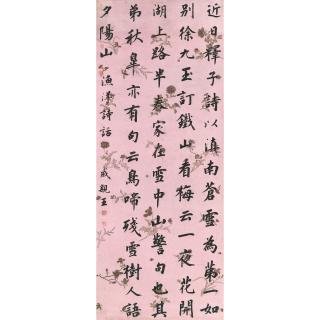 近日釋子詩以滇南蒼雪為第一如
別徐九玉訂鐵山看梅云一夜花開
湖上路半春家在雪中山警句也其
弟秋皐亦有句云鳥啼殘雪樹人語
夕陽山
漁洋詩話
成親王